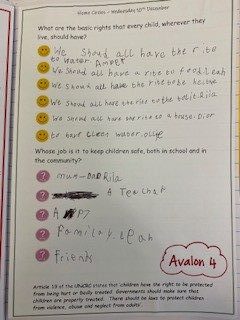 Home Circles - Wednesday 10th December
What are the basic rights that every child, wherever they
live, should have?
We Should all have the rite
to water. Amber
We Should all have a rite to food. Leah
We Should all have the rite to be
We Should all have the rite to the toilit. Rila
We Should all have the rite to a house.
to have clean water.
Whose job is it to keep children safe, both in school and in
the community?
mum-DAD Rila
A Teachar
A
Family. Leah
friends
Avalon 4
Article 19 of the UNCRC states that children have the right to be protected
from being hurt or badly treated. Governments should make sure that
children are properly treated. There should be laws to protect children
from violence, abuse and neglect from adults.